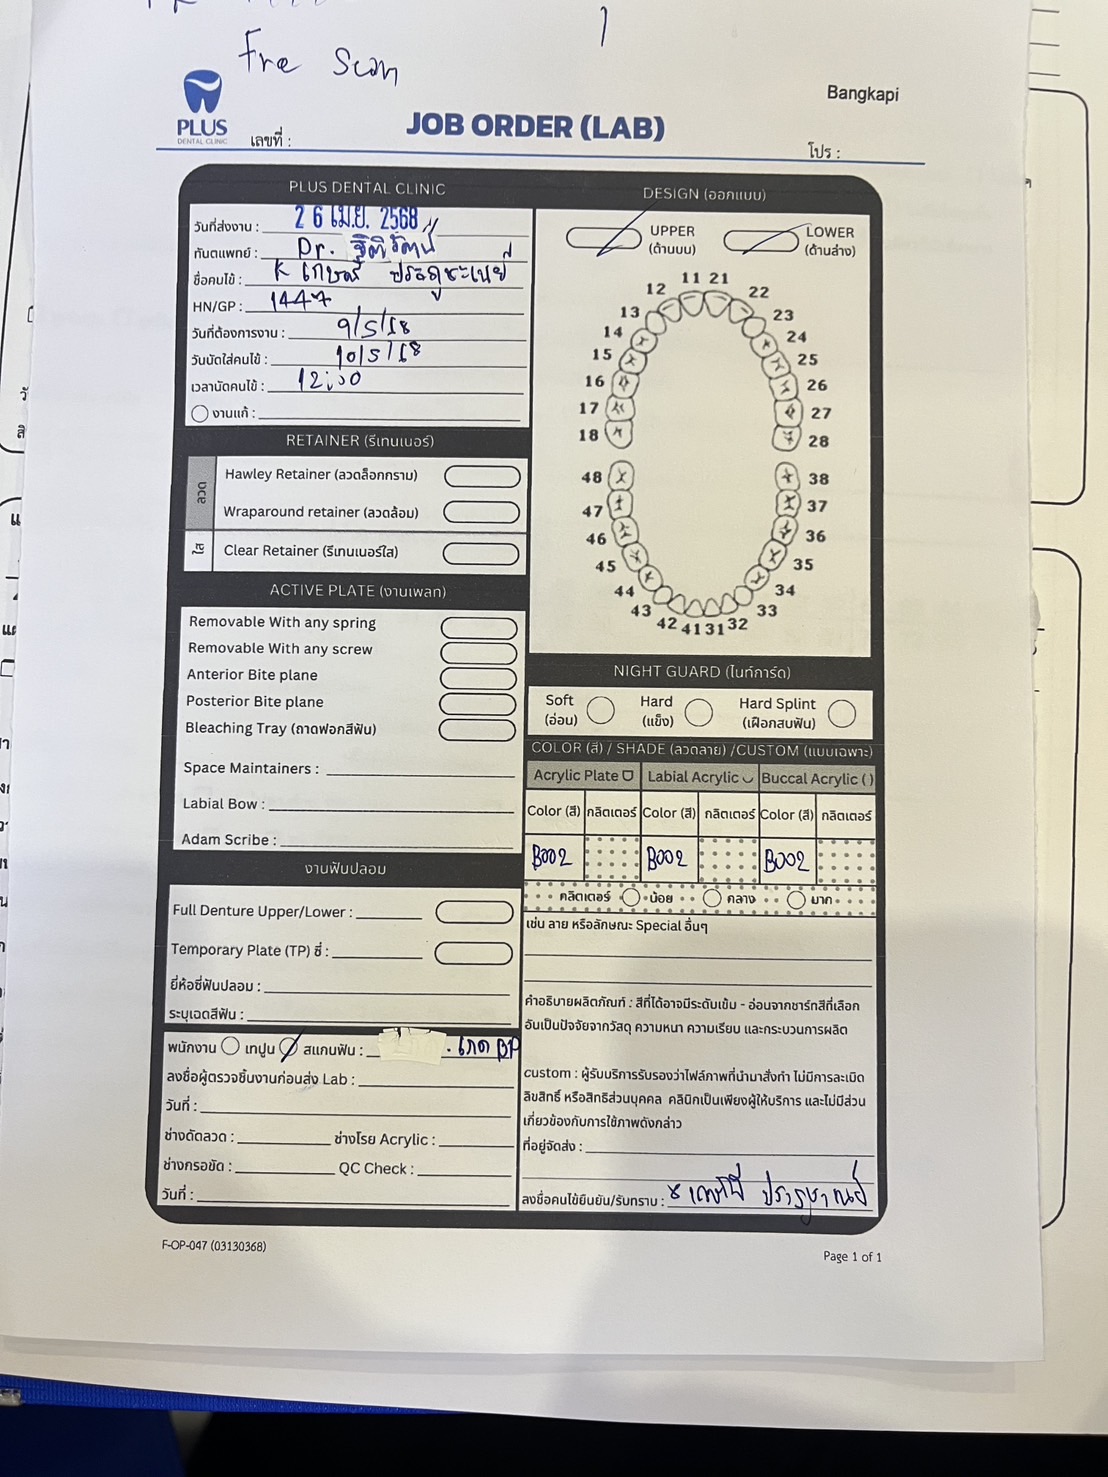 Fre Scan
1
Bangkapi
PLUS
DENTAL CLINIC
เลขที่ :
JOB ORDER (LAB)
โปร :
PLUS DENTAL CLINIC
วันที่ส่งงาน : 26 เม.ย. 2568
ทันตแพทย์ : Dr. ฐิติรัตน์
ชื่อคนไข้ : K เกษณี
HN/GP : 1447
วันที่ต้องการงาน : 9/5/68
วันนัดใส่คนไข้ : 10/5/68
เวลานัดคนไข้ : 12:00
งานแก้ :
RETAINER (รีเทนเนอร์)
ลวด
Hawley Retainer (ลวดล็อกกราม)
Wraparound retainer (ลวดล้อม)
ใส
Clear Retainer (รีเทนเนอร์ใส)
ACTIVE PLATE (งานเพลท)
Removable With any spring
Removable With any screw
Anterior Bite plane
Posterior Bite plane
Bleaching Tray (ถาดฟอกสีฟัน)
Space Maintainers :
Labial Bow :
Adam Scribe :
งานฟันปลอม
Full Denture Upper/Lower :
Temporary Plate (TP) ซี่ :
ยี่ห้อซี่ฟันปลอม :
ระบุเฉดสีฟัน :
พนักงาน เทปูน สแกนฟัน : . เกด BP
ลงชื่อผู้ตรวจชิ้นงานก่อนส่ง Lab :
วันที่ :
ช่างดัดลวด : ช่างโรย Acrylic :
ช่างกรอขัด : QC Check :
วันที่ :
DESIGN (ออกแบบ)
UPPER
(ด้านบน)
LOWER
(ด้านล่าง)
11 21
12 22
13 23
14 24
15 25
16 26
17 27
18 28
48 38
47 37
46 36
45 35
44 34
43 33
42 41 31 32
NIGHT GUARD (ไนท์การ์ด)
Soft
(อ่อน)
Hard
(แข็ง)
Hard Splint
(เฝือกสบฟัน)
COLOR (สี) / SHADE (ลวดลาย) /CUSTOM (แบบเฉพาะ)
Acrylic Plate Labial Acrylic Buccal Acrylic ( )
Color (สี) กลิตเตอร์ Color (สี) กลิตเตอร์ Color (สี) กลิตเตอร์
B002 B002 B002
กลิตเตอร์ น้อย กลาง มาก
เช่น ลาย หรือลักษณะ Special อื่นๆ
คำอธิบายผลิตภัณฑ์ : สีที่ได้อาจมีระดับเข้ม - อ่อนจากชาร์ทสีที่เลือก
อันเป็นปัจจัยจากวัสดุ ความหนา ความเรียบ และกระบวนการผลิต
custom : ผู้รับบริการรับรองว่าไฟล์ภาพที่นำมาสั่งทำ ไม่มีการละเมิด
ลิขสิทธิ์ หรือสิทธิส่วนบุคคล คลินิกเป็นเพียงผู้ให้บริการ และไม่มีส่วน
เกี่ยวข้องกับการใช้ภาพดังกล่าว
ที่อยู่จัดส่ง :
ลงชื่อคนไข้ยืนยัน/รับทราบ :
F-OP-047 (03130368)
Page 1 of 1